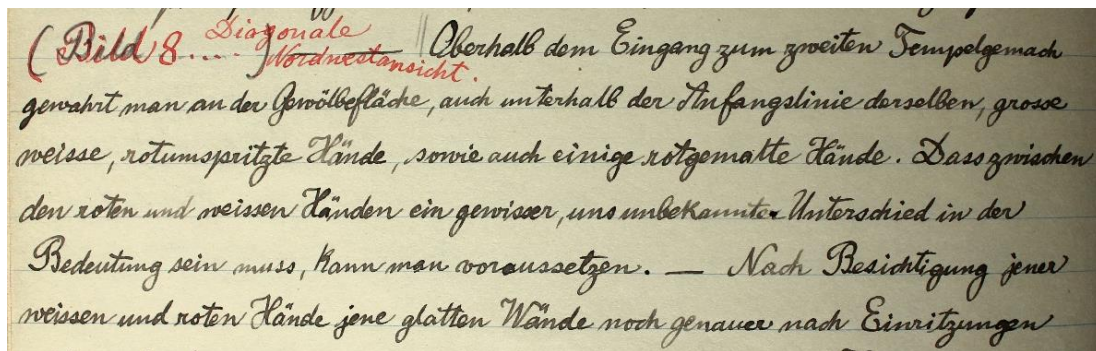 (Bild 8.... Diagonale Nordwestansicht.) Oberhalb dem Eingang zum zweiten Tempelgemach
gewahrt man an der Gewölbefläche, auch unterhalb der Anfangslinie derselben, grosse
weisse, rotumspritzte Hände, sowie auch einige rotgemalte Hände. Dass zwischen
den roten und weissen Händen ein gewisser, uns unbekannter Unterschied in der
Bedeutung sein muss, kann man voraussetzen. — Nach Besichtigung jener
weissen und roten Hände jene glatten Wände noch genauer nach Einritzungen